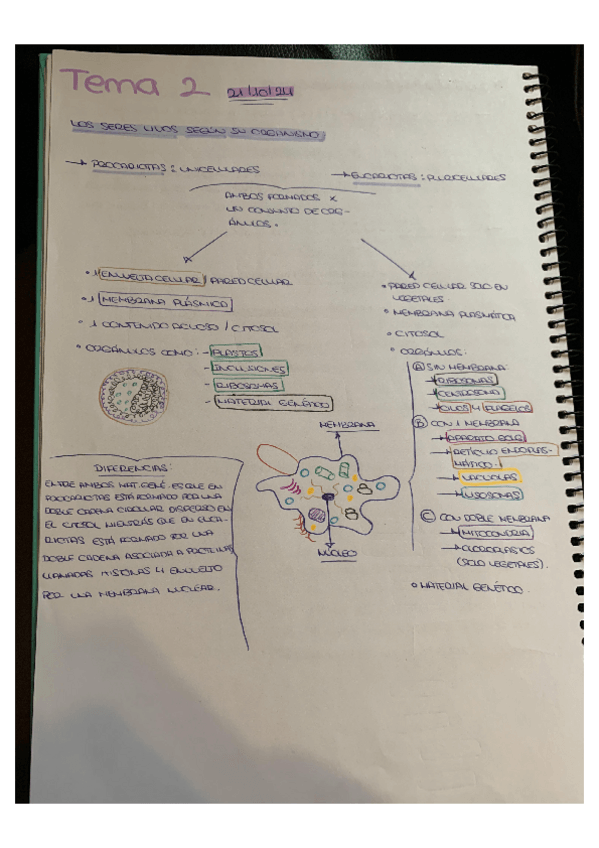 Tema 2 21/10/24
LOS SERES VIVOS SEGÚN SU ORGANISMO
→ PROCARIOTAS: UNICELULARES
→ EUCARIOTAS: PLURICELULARES
AMBOS FORMADOS X
UN CONJUNTO DE ORG-
ÁNULOS.
• 1 ENVUELTA CELULAR / PARED CELULAR
• 1 MEMBRANA PLÁSMICA
• 1 CONTENIDO ACUOSO / CITOSOL
• ORGÁNULOS COMO: - PLASTES
- INCLUSIONES
- RIBOSOMAS
- MATERIAL GENÉTICO
• PARED CELULAR SOLO EN
VEGETALES.
• MEMBRANA PLASMÁTICA
• CITOSOL
• ORGÁNULOS:
A SIN MEMBRANA:
→ RIBOSOMAS
→ CENTROSOMA
→ CILIOS Y FLAGELOS
B CON 1 MEMBRANA
→ APARATO GOLGI
→ RETÍCULO ENDOPLAS-
MÁTICO.
→ VACUOLAS
→ LISOSOMAS
C CON DOBLE MEMBRANA
→ MITOCONDRIA
→ CLOROPLASTOS
(SOLO VEGETALES).
• MATERIAL GENÉTICO.
MEMBRANA
NÚCLEO
DIFERENCIAS:
ENTRE AMBOS MAT. GENÉ. ES QUE EN
PROCARIOTAS ESTÁ FORMADO POR UNA
DOBLE CADENA CIRCULAR DISPERSO EN
EL CITOSOL MIENTRÁS QUE EN EUCA-
RIOTAS ESTÁ FORMADO POR UNA
DOBLE CADENA ASOCIADA A PROTEÍNAS
LLAMADAS HISTONAS Y ENVUELTO
POR UNA MEMBRANA NUCLEAR.